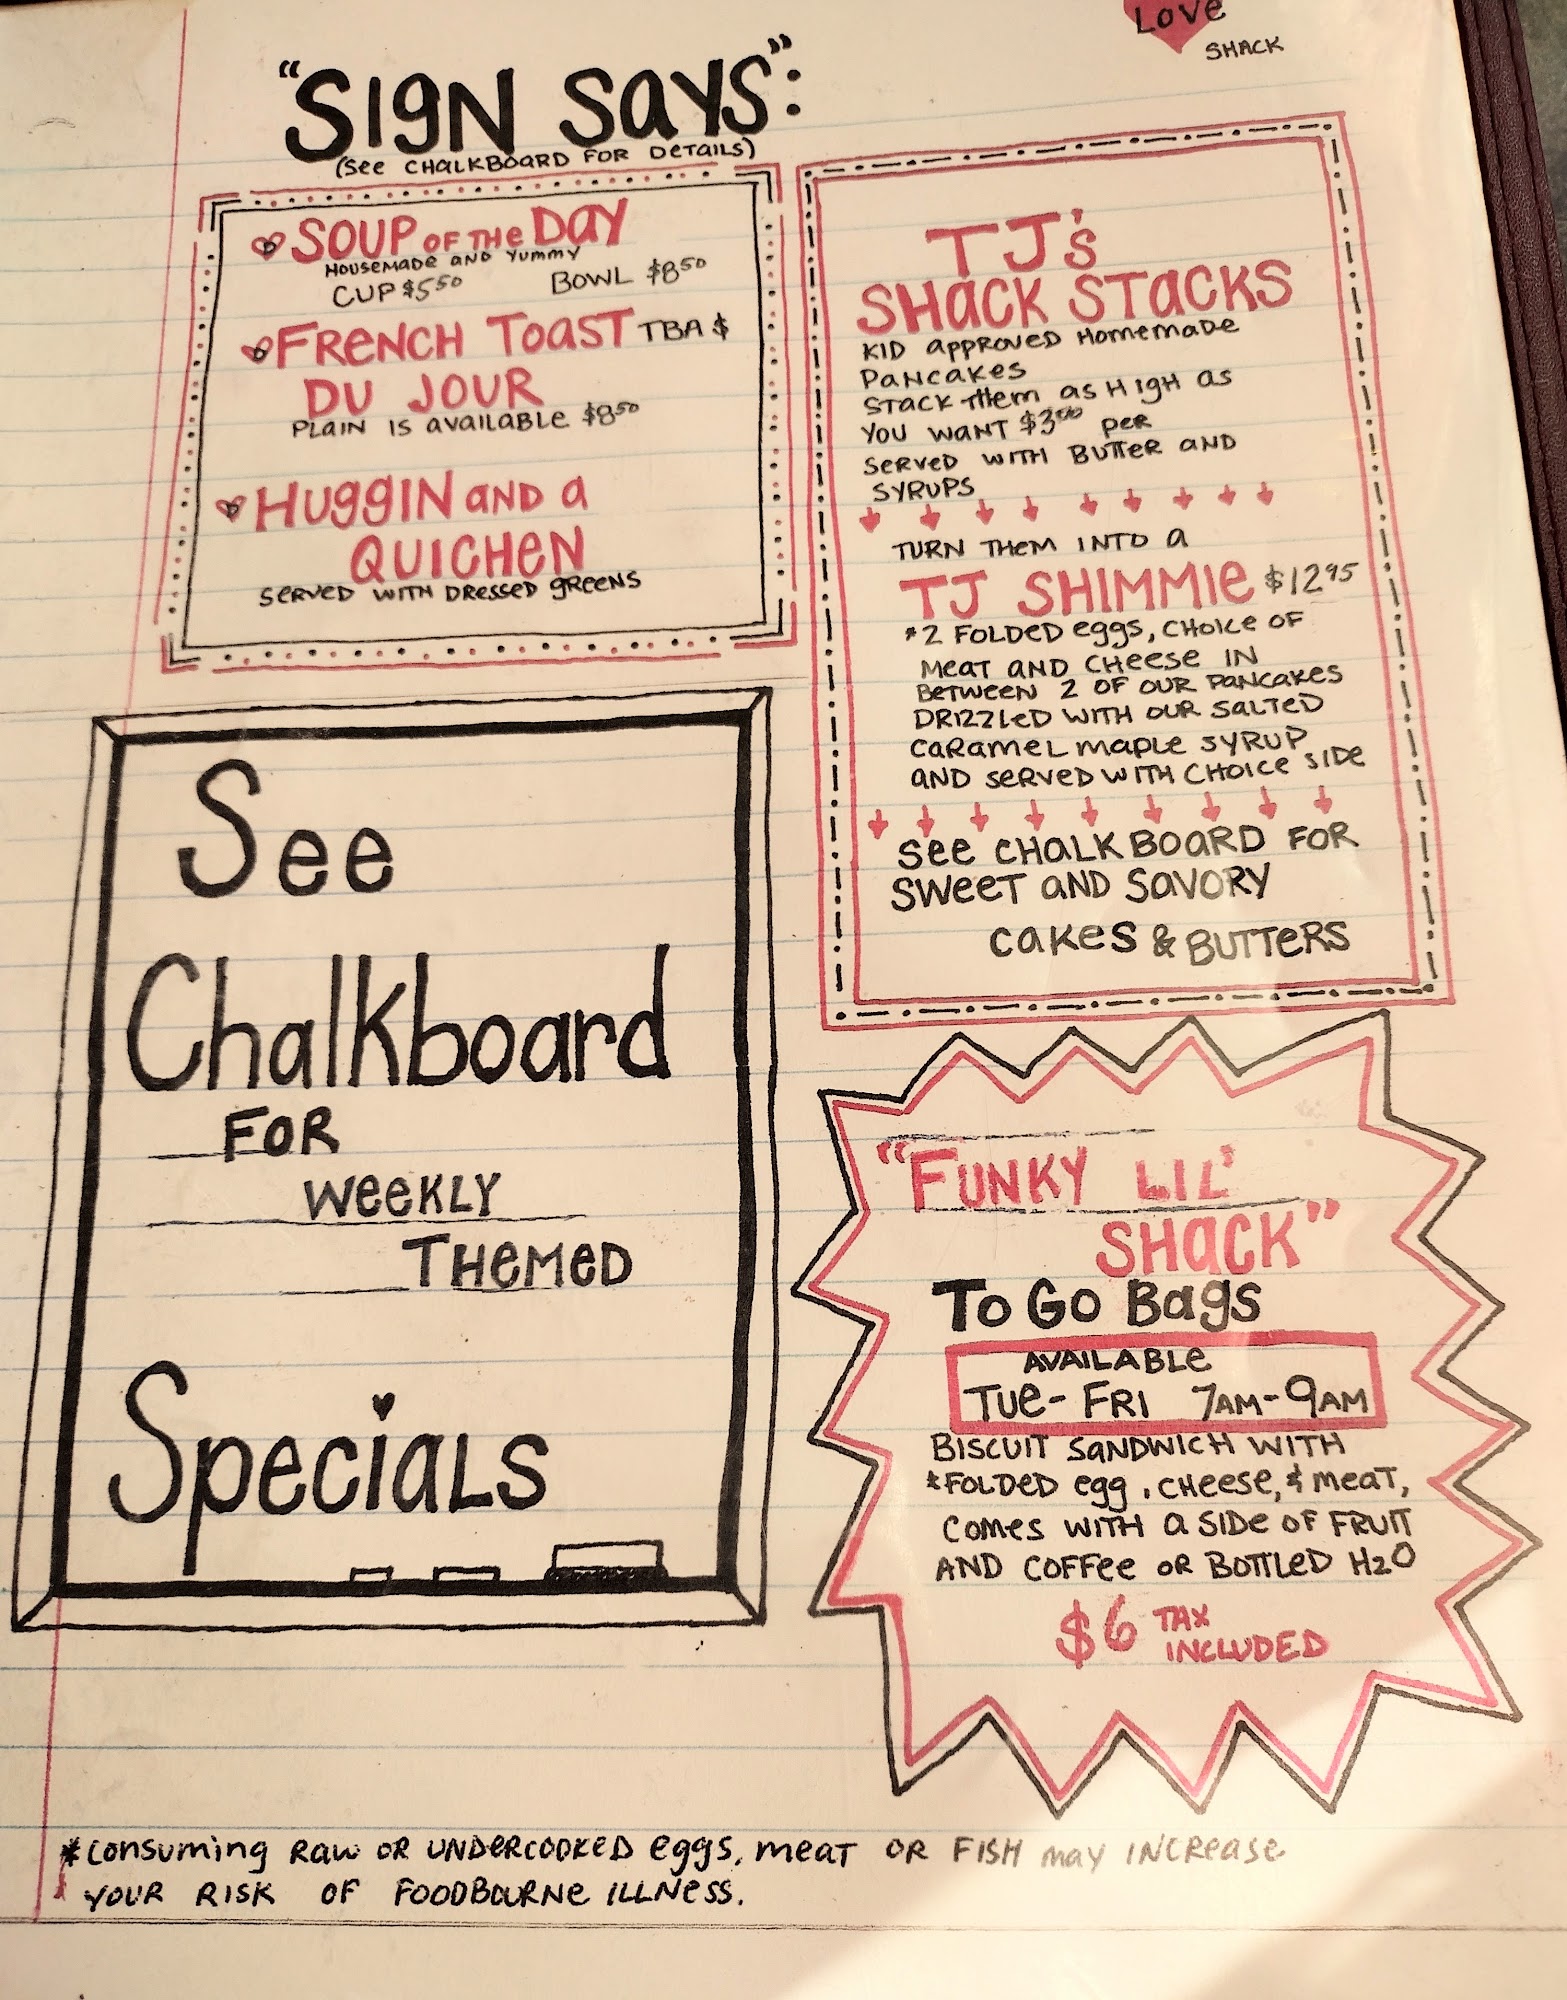 Love
SHACK
"SIGN SAYS":
(See CHALKBOARD FOR DETAILS)
SOUP OF THE DAY
HOUSEMADE AND YUMMY
CUP $5.50 BOWL $8.50
FRENCH TOAST TBA $
DU JOUR
PLAIN IS AVAILABLE $8.50
HUGGIN AND A
QUICHEN
SERVED WITH DRESSED GREENS
See
Chalkboard
FOR
WEEKLY
THEMED
Specials
TJ's
SHACK STACKS
KID APPROVED HOMEMADE
PANCAKES
STACK THEM AS HIGH AS
YOU WANT $3.00 PER
SERVED WITH BUTTER AND
SYRUPS
TURN THEM INTO A
TJ SHIMMIE $12.95
*2 FOLDED EGGS, CHOICE OF
MEAT AND CHEESE IN
BETWEEN 2 OF OUR PANCAKES
DRIZZLED WITH OUR SALTED
CARAMEL MAPLE SYRUP
AND SERVED WITH CHOICE SIDE
SEE CHALKBOARD FOR
SWEET AND SAVORY
CAKES & BUTTERS
"FUNKY LIL'
SHACK"
TO GO BAGS
AVAILABLE
TUE-FRI 7AM-9AM
BISCUIT SANDWICH WITH
*FOLDED EGG, CHEESE, & MEAT,
COMES WITH A SIDE OF FRUIT
AND COFFEE OR BOTTLED H2O
$6 TAX
INCLUDED
*CONSUMING RAW OR UNDERCOOKED EGGS, MEAT OR FISH MAY INCREASE
YOUR RISK OF FOODBOURNE ILLNESS.